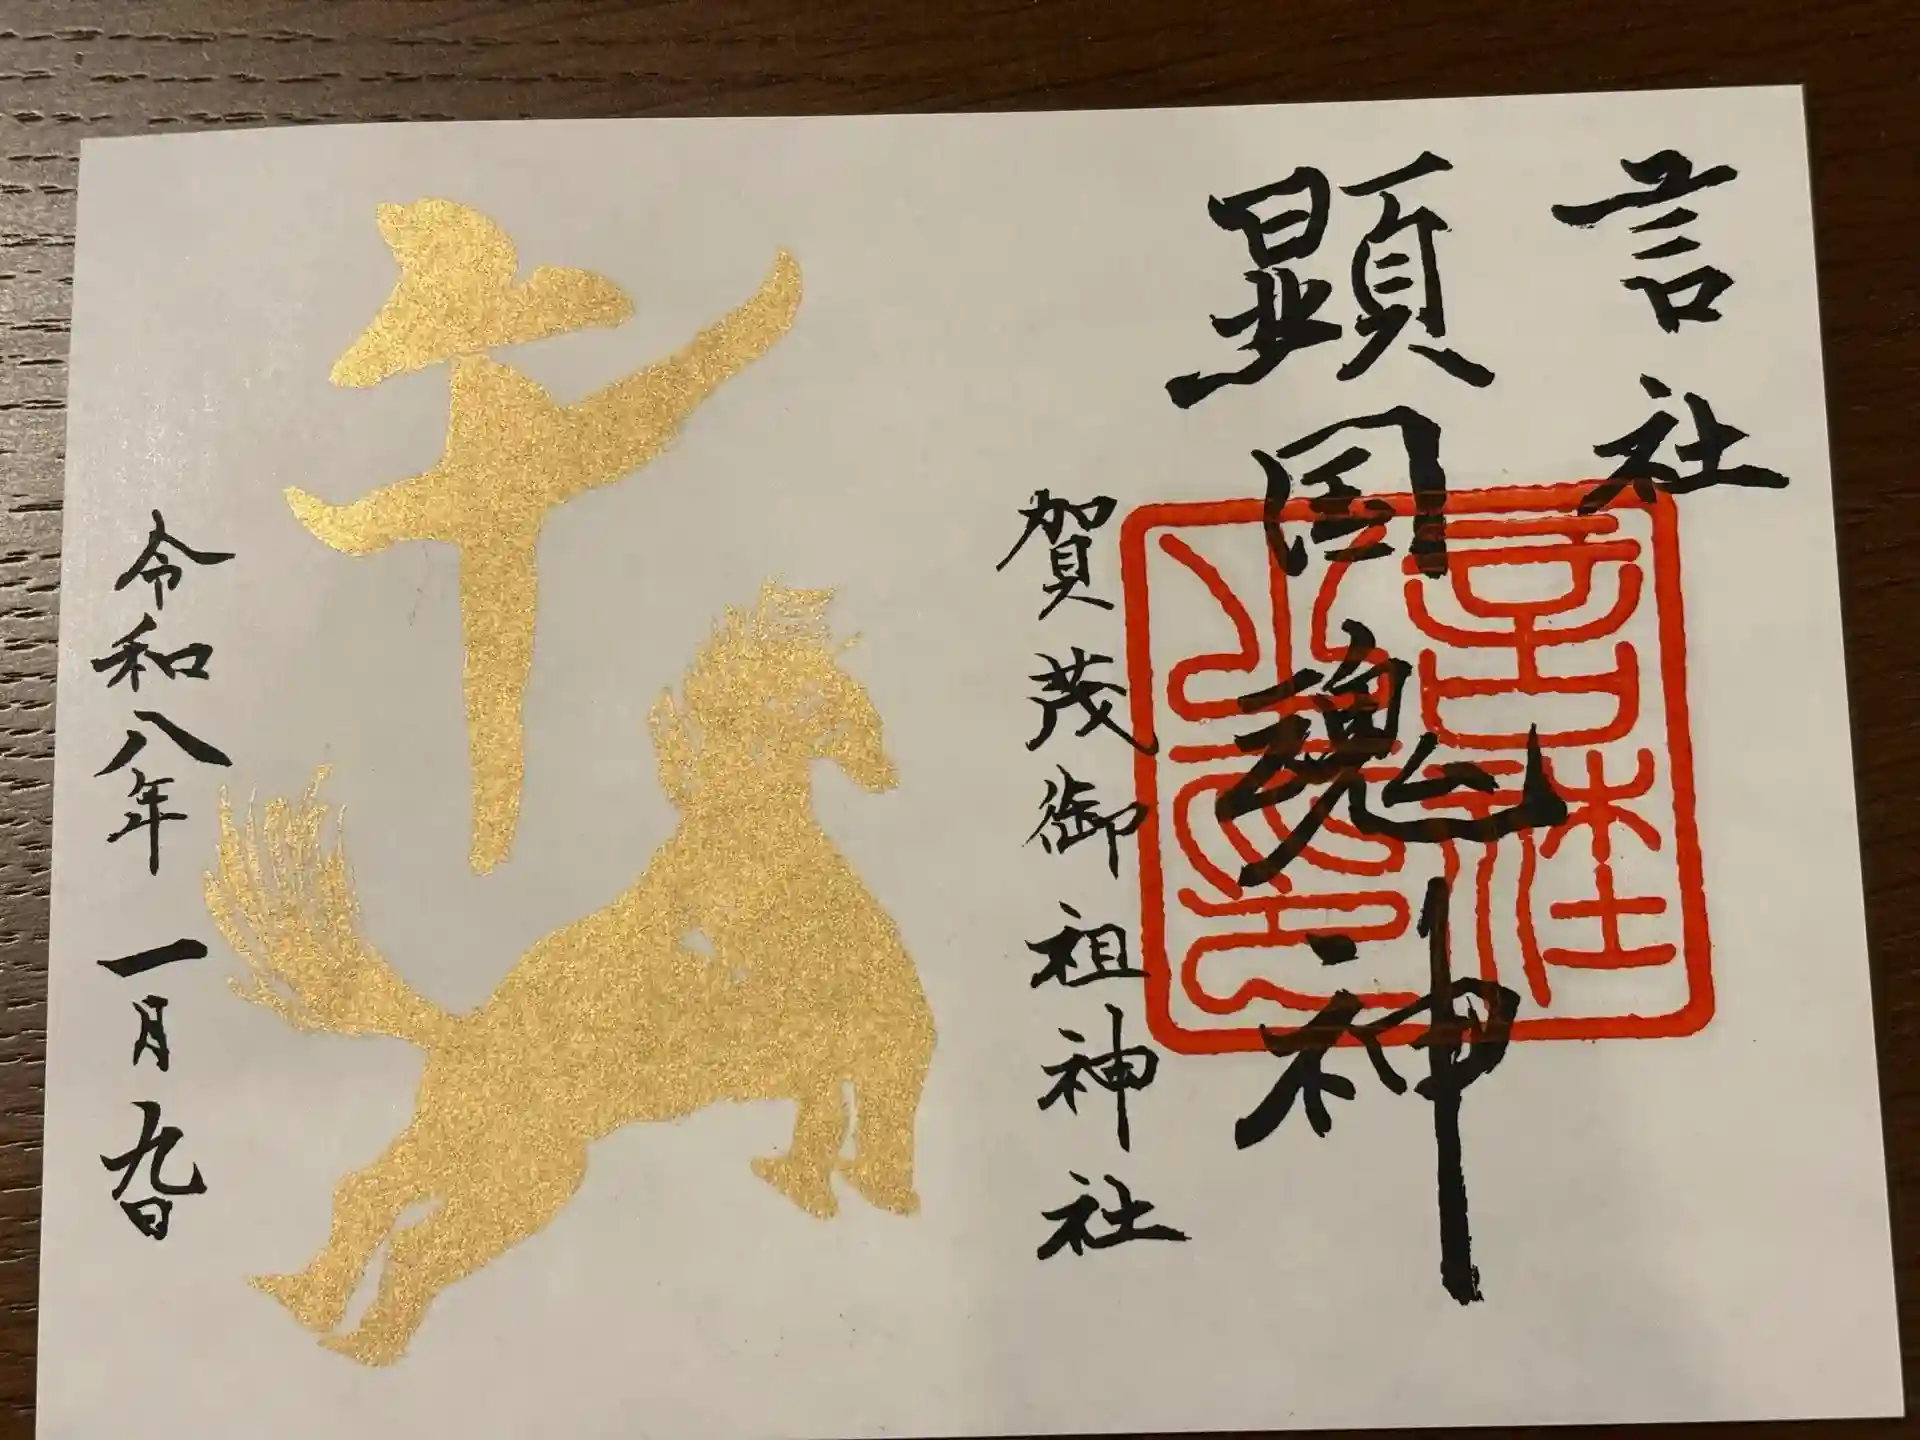 言社
顕国魂神
言社
賀茂御祖神社
午
令和八年一月九日